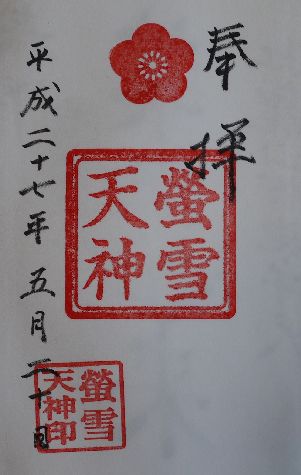 奉拝
螢雪
天神
平成二十七年五月二十日
螢雪
天神印